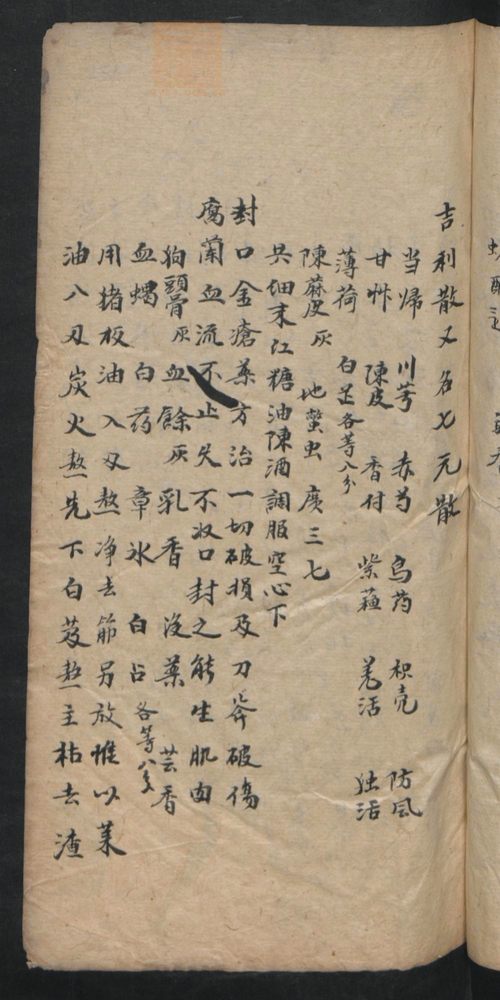 吉利散又名七元散
当帰 川芎 赤芍 烏药 枳壳 防风
甘艸 陳皮 香付 紫蘓 羌活 独活
薄荷 白芷各等八分
陳蔴皮灰 地蟞虫 廣三七
共細末红糖油陳酒調服空心下
封口金瘡薬方治一切破損及刀斧破傷
腐蘭血流不止久不收口封之能生肌肉
狗頭骨灰 血餘灰 乳香 没薬 芸香
血蝎 白药 章氷 白占各等八分
用猪板油入刄熬净去筋另放惟以菜
油八刄炭火熬先下白芨熬主枯去渣